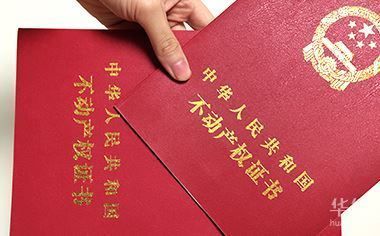 中华人民共和国
不动产权证书
中华人民共和国
不动产权证书